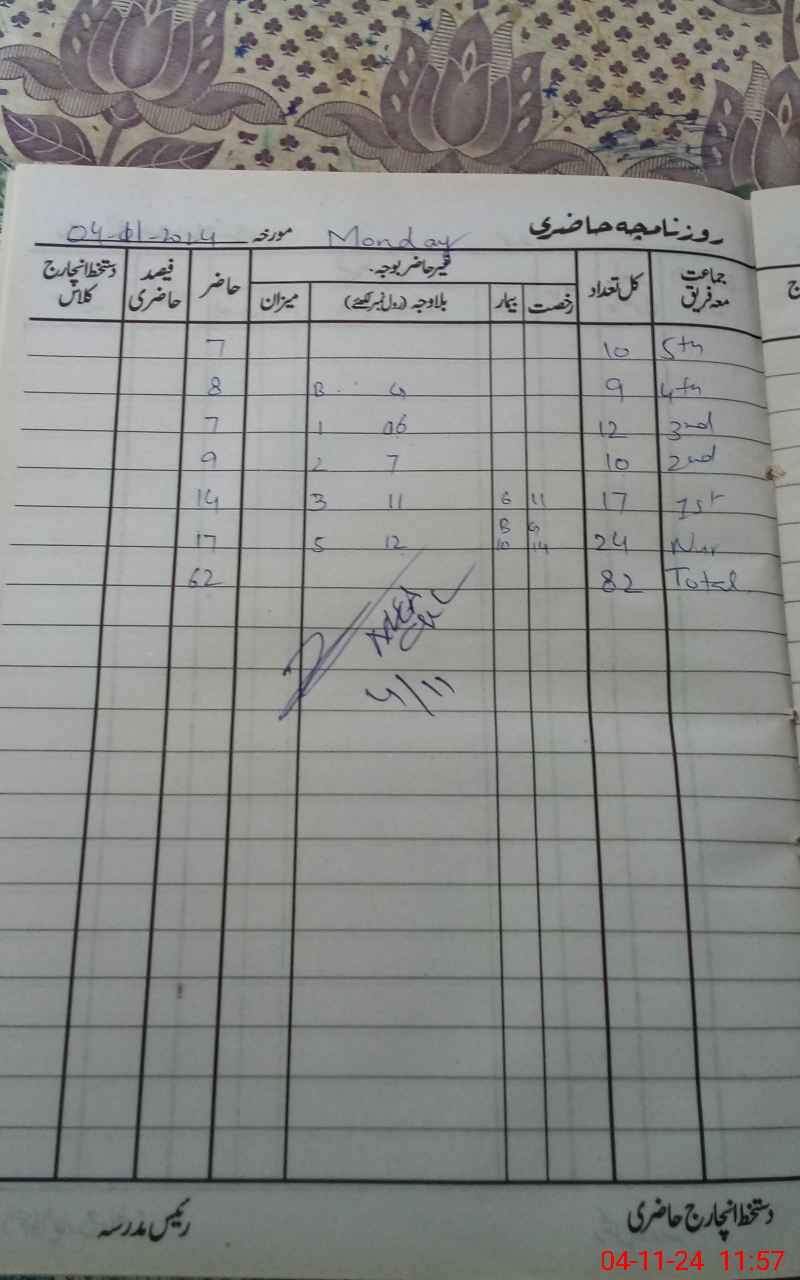 روزنامچہ حاضری Monday مورخہ 04-11-2024
جماعت معہ فریق کل تعداد غیر حاضر بوجہ۔ حاضر فیصد حاضری دستخط انچارج کلاس
رخصت بیمار بلاوجہ (رول نمبر لکھئے) میزان
5th 10 7
4th 9 B 4 8
3nd 12 1 06 7
2nd 10 2 7 9
1st 17 11 6 3 11 14
Nur 24 14 10 5 12 17
Total 82 62
AEO
4/11
دستخط انچارج حاضری رئیس مدرسہ
04-11-24 11:57